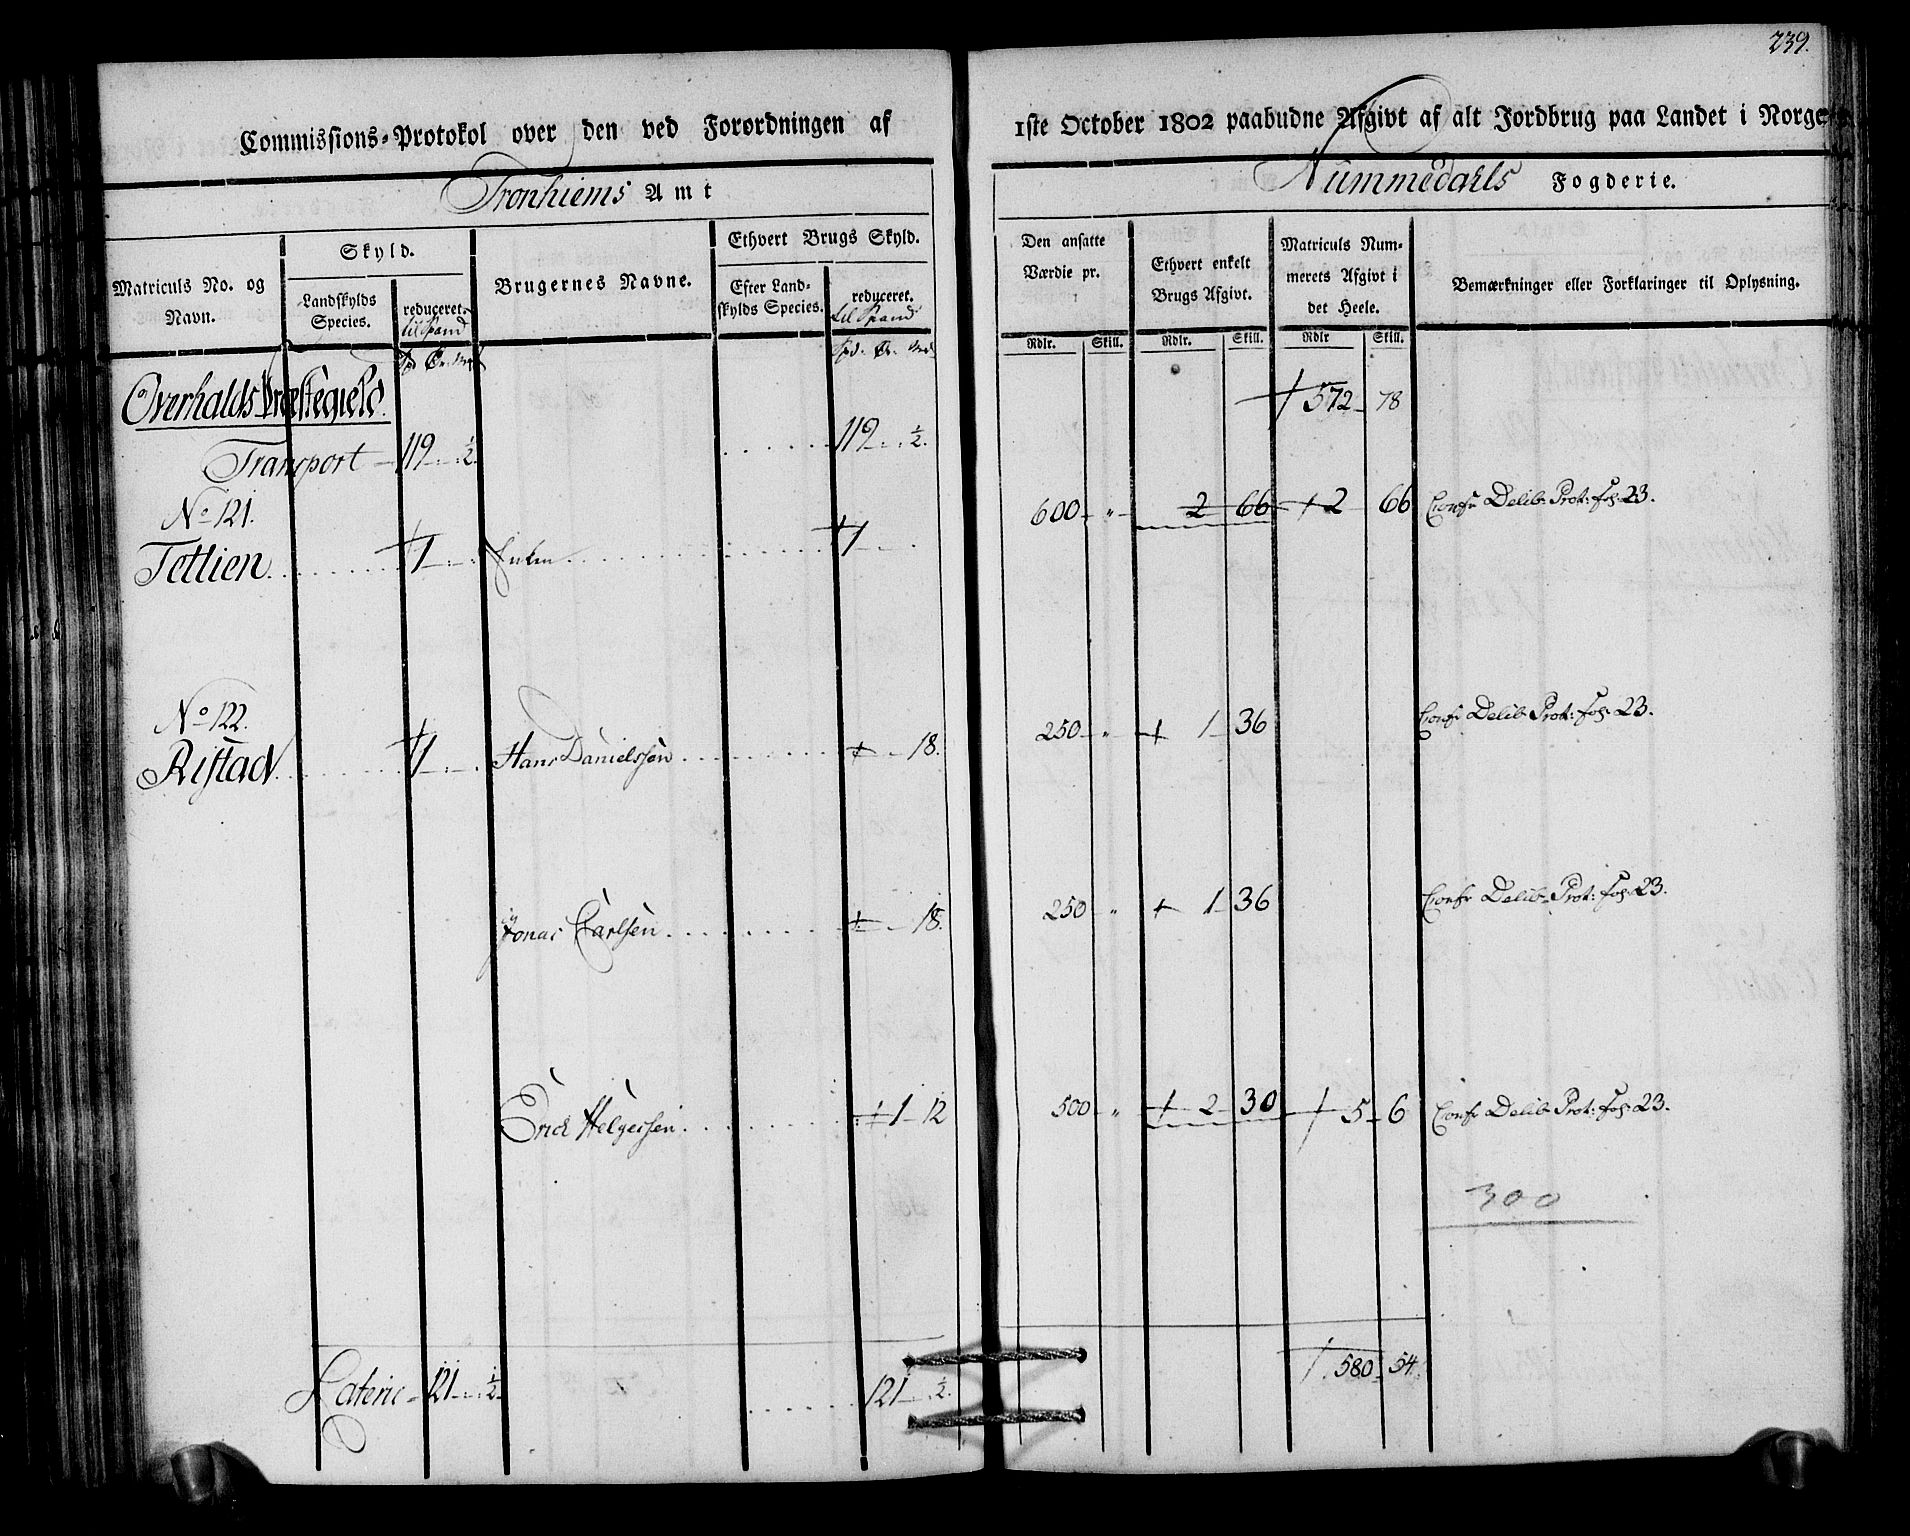 239.
Commissions-Protokol over den ved Forordningen af 1ste October 1802 paabudne Afgivt af alt Jordbrug paa Landet i Norge
Tronhiems Amt
Nummedahls Fogderie.
Matriculs No. og Navn.
Skyld.
Landskylds Species.
reduceret.
til Spand
Brugernes Navne.
Ethvert Brugs Skyld.
Efter Landskylds Species.
reduceret.
til Spand
Den ansatte Værdie pr.
Ethvert enkelt Brugs Afgivt.
Matriculs Nummerets Afgivt i det Heele.
Bemærkninger eller Forklaringer til Oplysning.
Rdlr. Skill. Rdlr. Skill. Rdlr Skill.
Overhalds Præstegield.
572 78
Transport 119 ½ 119 ½
No 121.
Tetlien 1 1 600 " 2 66 2 66 Confr Delib: Prot: fol: 23.
No 122.
Ristad 1 Hans Danielssen 18. 250 " 1 36 Confr Delib: Prot: fol: 23.
Jonas Carlsen 18. 250 " 1 36 Confr Delib: Prot: fol: 23.
Erick Helgessen 1 12 500 " 2 30 5 6 Confr Delib: Prot: fol: 23.
300
Lateris 121 ½ 121 ½ 580 54